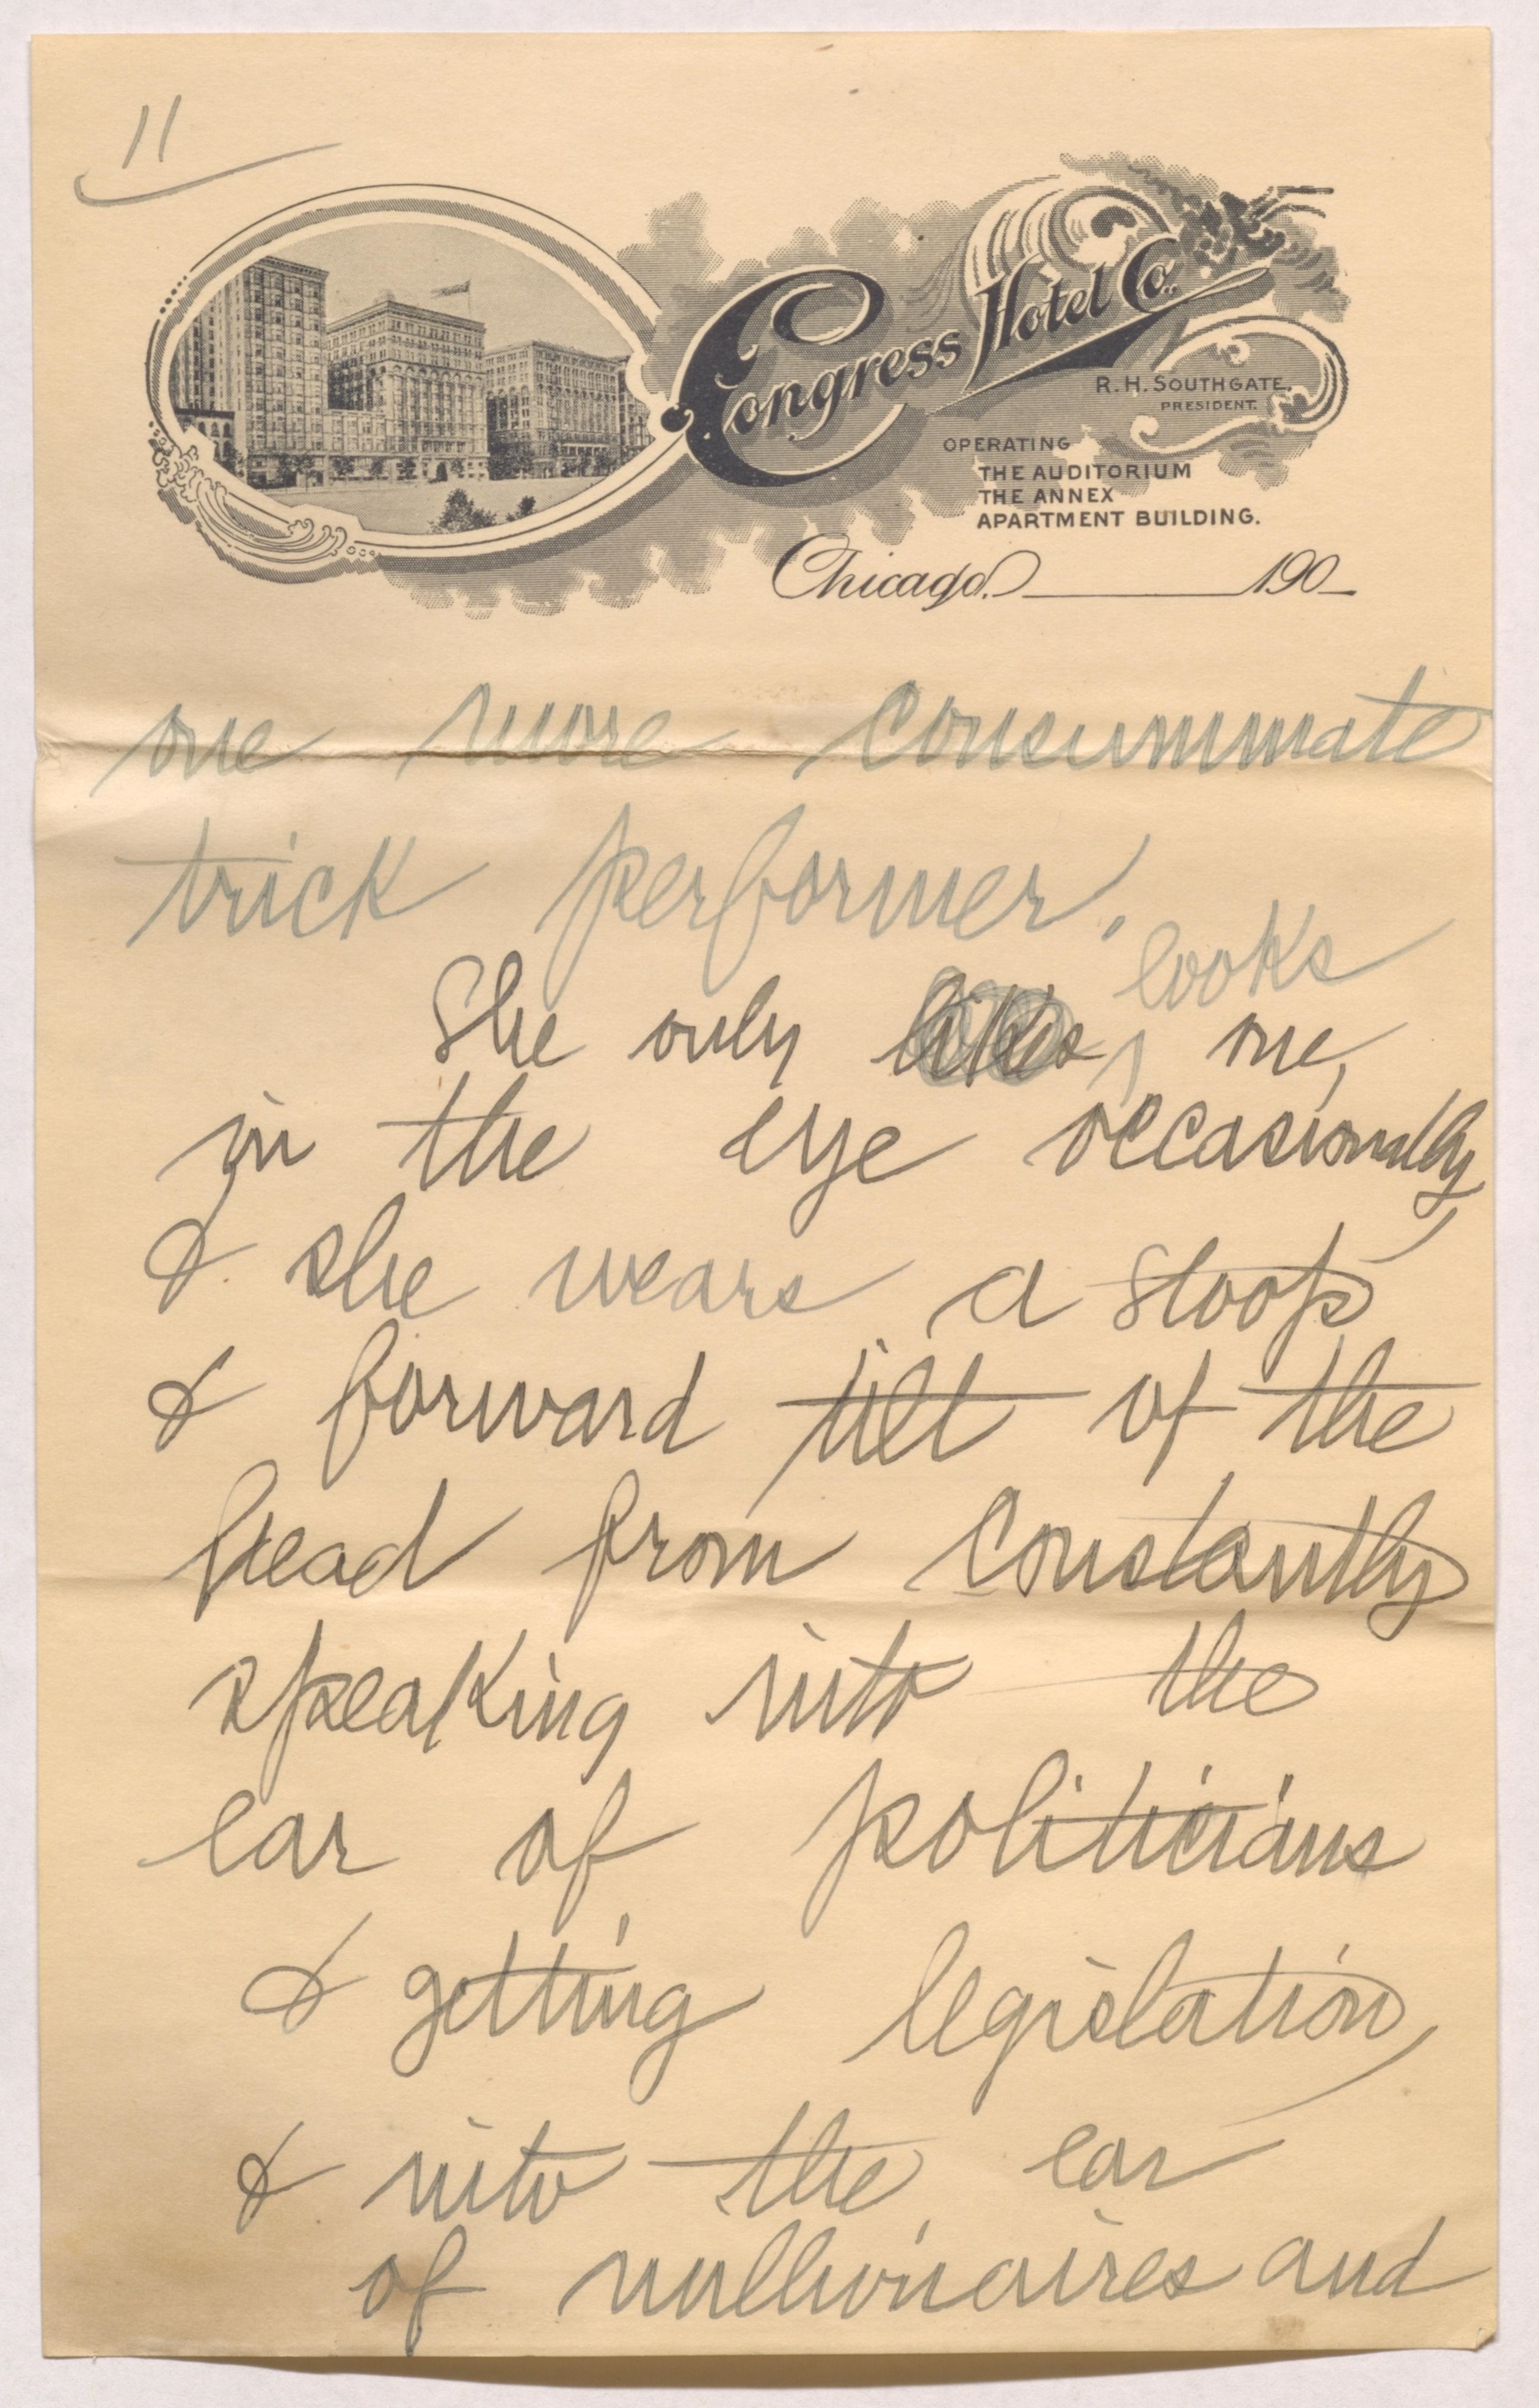 11
Congress Hotel Co.
R. H. SOUTHGATE,
PRESIDENT.
OPERATING
THE AUDITORIUM
THE ANNEX
APARTMENT BUILDING.
Chicago. 190
one more consummate
trick performer.
looks
She only one,
in the eye occasionally,
& she wears a stoop
& forward tilt of the
head from constantly
speaking into the
ear of politicians
& getting legislation,
& into the ear
of millionaires and